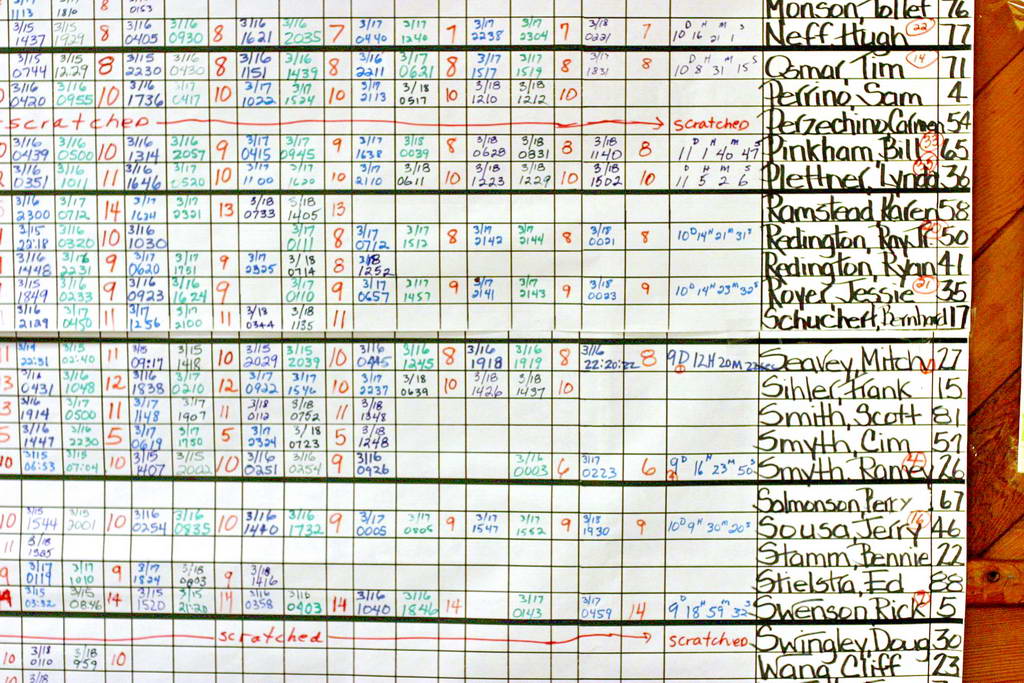 1113 1810 8 0153 Monson, Tollet 76
3/15 3/15 3/16 3/16 3/16 3/16 3/17 3/17 3/17 3/17 3/18 D H M S 22
1437 1929 8 0405 0930 8 1621 2035 7 0440 1240 7 2238 2304 7 0221 7 10 16 21 1 Neff, Hugh 77
3/15 3/15 3/15 3/16 3/16 3/16 3/16 3/17 3/17 3/17 3/17 D H M S 14
0744 1229 8 2230 0430 8 1151 1439 8 2211 0621 8 1517 1519 8 1831 8 10 8 31 15 Osmar, Tim 71
3/16 3/16 3/16 3/17 3/17 3/17 3/17 3/18 3/18 3/18
0420 0955 10 1736 0417 10 1022 1524 10 2113 0517 10 1210 1212 10 Perrino, Sam 4
scratched scratched Perzechino, Carmen 54
3/16 3/16 3/16 3/16 3/17 3/17 3/17 3/18 3/18 3/18 3/18 D H M S
0439 0500 10 1314 2057 9 0415 0945 9 1638 0039 8 0628 0831 8 1140 8 11 1 40 47 Pinkham, Bill 65
3/16 3/16 3/16 3/17 3/17 3/17 3/17 3/18 3/18 3/18 3/18 D H M S
0351 1011 11 1646 0520 10 1100 1620 10 2110 0611 10 1223 1229 10 1502 10 11 5 2 6 Plettner, Lynda 36
3/16 3/17 3/17 3/17 3/18 3/18
2300 0712 14 1624 2321 13 0733 1405 13 Ramstead, Karen 58
3/15 3/16 3/16 3/17 3/17 3/17 3/17 3/17 3/18
22:18 0320 10 1030 0111 8 0712 1512 8 2142 2144 8 0021 8 10D 14H 21M 31S Redington, Ray Jr. 50
3/16 3/16 3/17 3/17 3/17 3/18 3/18
1448 2231 9 0620 1751 9 2325 0714 8 1252 Redington, Ryan 41
3/15 3/16 3/16 3/16 3/17 3/17 3/17 3/17 3/17 3/18 21
1849 0233 9 0923 1624 9 0110 9 0657 1457 9 2141 2143 9 0023 9 10D 14H 23M 32S Royer, Jessie 35
3/16 3/17 3/17 3/17 3/18 3/18
2129 0450 11 1256 2100 11 0344 1135 11 Schuchert, Bernhard 17
3/14 3/15 3/15 3/15 3/15 3/15 3/16 3/16 3/16 3/16 3/16
22:31 02:40 11 09:17 1418 10 2029 2039 10 0445 1245 8 1918 1919 8 22:20:22 8 9D 12H 20M 22sec Seavey, Mitch 27
3/16 3/16 3/16 3/17 3/17 3/17 3/17 3/18 3/18 3/18
13 0431 1048 12 1838 0210 12 0922 1540 10 2237 0639 10 1426 1437 10 Sihler, Frank 15
3/16 3/17 3/17 3/17 3/18 3/18 3/18
1914 0500 11 1148 1907 11 0112 0752 11 1348 Smith, Scott 81
3/16 3/16 3/17 3/17 3/17 3/18 3/18
5 1447 2230 5 0619 1750 5 2324 0723 5 1248 Smyth, Cim 57
3/15 3/15 3/15 3/15 3/16 3/16 3/16 3/16 3/17 4
10 06:53 07:04 10 1407 2002 10 0251 0254 9 0926 0003 6 0223 6 9D 16H 23M 50S Smyth, Ramey 26
Solmonson, Perry 67
3/15 3/15 3/16 3/16 3/16 3/16 3/17 3/17 3/17 3/17 3/18 16
10 1544 2001 10 0254 0835 10 1440 1732 9 0005 0805 9 1547 1552 9 1930 9 10D 9H 30M 20S Sousa, Jerry 46
3/18
11 1325 Stamm, Bennie 22
3/17 3/17 3/17 3/18 3/18
9 0119 1010 9 1824 0803 9 1416 Stielstra, Ed 88
3/15 3/15 3/15 3/15 3/16 3/16 3/16 3/16 3/17 3/17
03:32 0846 14 1520 21:20 14 0358 0403 14 1040 1846 14 0143 0459 14 9D 18H 59M 32S Swenson, Rick 5
scratched scratched Swingley, Doug 30
3/18 3/18
10 0110 959 10 Wang, Cliff 23
3/18